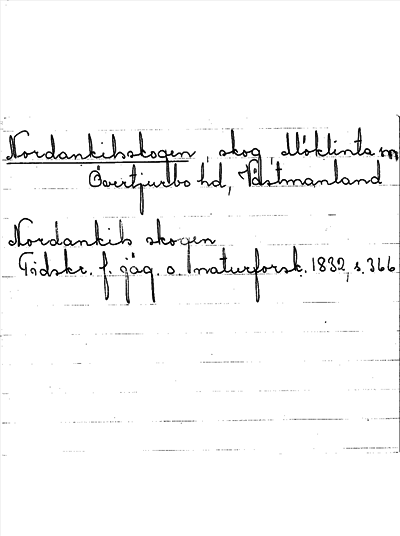 Nordankihskogen, skog, Möklinta sn
Övertjurbo hd, Västmanland
Nordankih skogen
Tidskr. f. jäg. o. naturforsk. 1832, s. 366